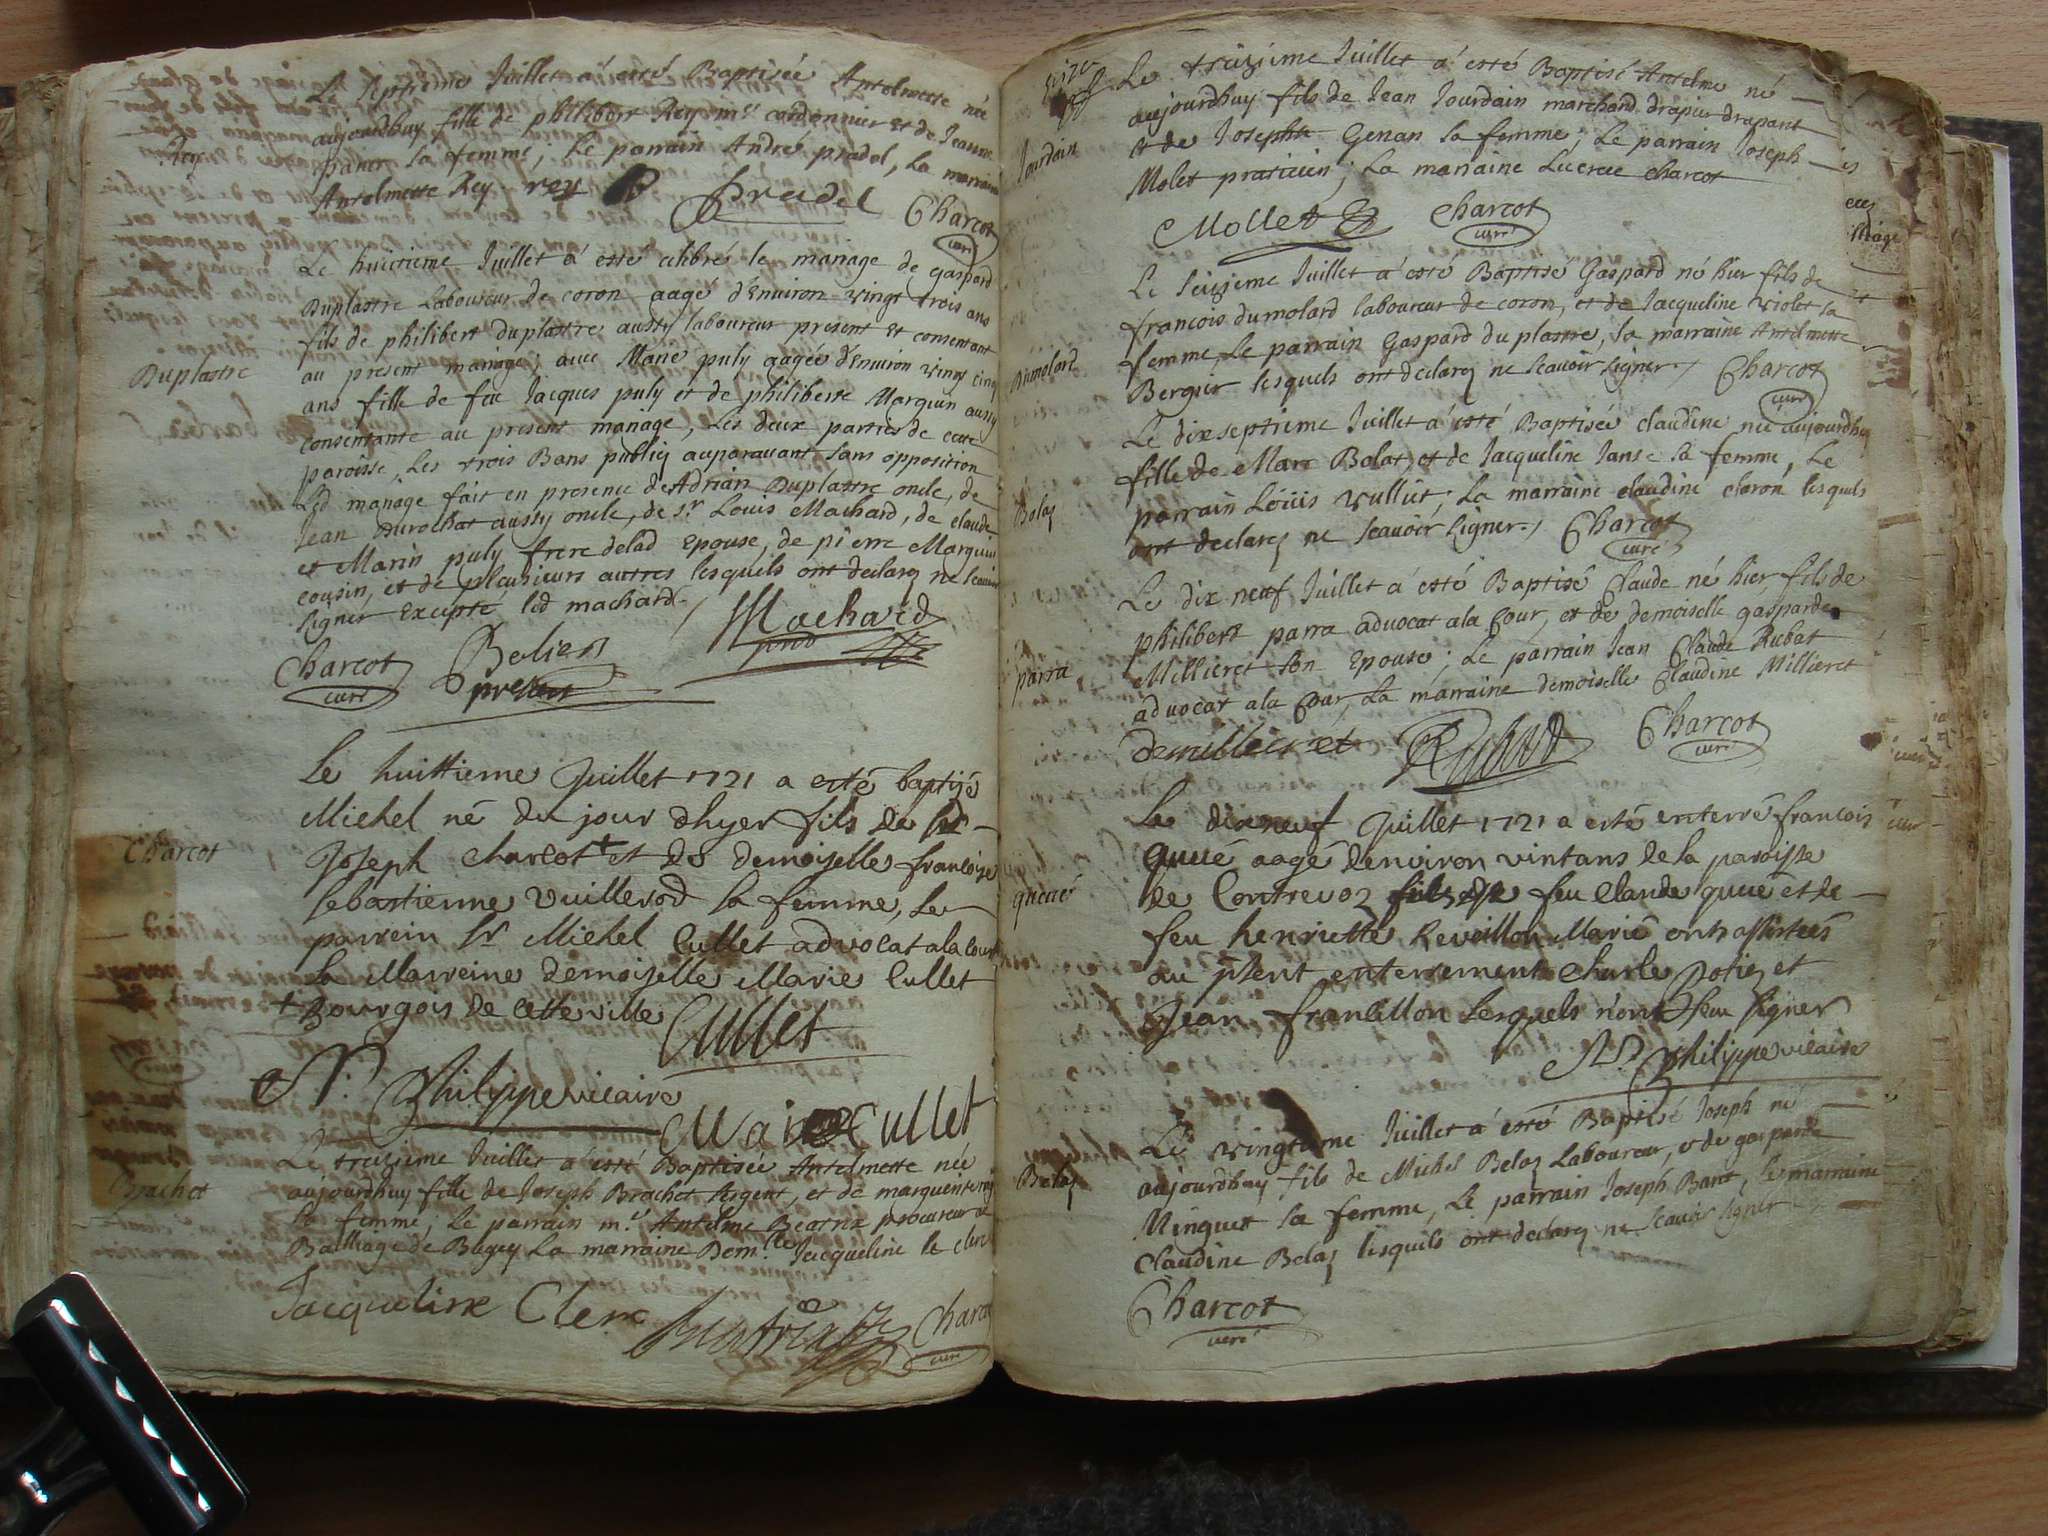 Le septieme Juillet a esté Baptisée Antelmette née
aujourdhuy fille de philibert Rey mr cordonnier et de Jeanne
Rey
panet sa femme; Le parrain André pradel, La marraine
Antelmette Rey rey Pradel Charcot
curé
Le huictieme Juillet a esté celebré le mariage de gaspard
Duplastre Laboureur de coron aagé d'Environ vingt trois ans
fils de philibert duplastre aussy laboureur present et consentant
Duplastre
au present mariage; avec Marie puly aagée d'Environ vingt cinq
ans fille de feu Jacques puly et de philiberte Marquin aussy
consentante au present mariage, Les deux parties de cette
paroisse, Les trois Bans publiez auparavant sans opposition
Led mariage fait en presence de Adrian Duplastre oncle, de
Jean Durochat aussy oncle, de sr Louis Machard, de claude
et Marin puly frere delad Epouse, de pierre Marquin
cousin, et de plusieurs autres lesquels ont declarez ne scavoir
signer Excepte led machard
Machard
Charcot curé present
Le huittieme Juillet 1721 a esté baptizé
Michel né du jour dhyer fils de sr
Charcot
Joseph Charcot + et de demoiselle francoise
sebastienne Vuillerod sa femme, Le
parrein sr Michel Cullet advocat a la cour
La Marreine demoiselle Marie Cullet
+ Bourgois de cette ville Cullet
Philippe vicaire
Marie Cullet
Le treizieme Juillet a esté Baptisée Antelmette née
Brachet
aujourdhuy fille de Joseph Brachet Argent, et de marguerite
sa femme, Le parrain mr Antelme procureur au
Bailliage de Bugey La marraine Demlle Jacqueline le clerc
Jacqueline Clerc Charcot
curé
Le treizieme Juillet a esté Baptisé Antelme né
aujourdhuy fils de Jean Jourdain marchand drapier drapant
Jourdain
et de Josephte Genan sa femme; Le parrain Joseph
Molet praticien; La marraine Lucrece charcot
Mollet Charcot
curé
Le seizieme Juillet a esté Baptisé Gaspard né hier fils de
francois dumolard laboureur de coron, et de Jacqueline violet sa
Dumolard
femme, Le parrain Gaspard du plastre, la marraine Antelmette
Bergier lesquels ont declarez ne scavoir signer Charcot
curé
Le dixseptieme Juillet a esté Baptisée claudine née aujourdhuy
fille de Marc Bolaz et de Jacqueline Janse sa femme, Le
Bolaz
parrain Louis vullut; La marraine claudine claron lesquels
ont declarez ne scavoir signer Charcot
curé
Le dix neuf Juillet a esté Baptisé Claude né hier, fils de
philibert parra advocat a la Cour, et de demoiselle gasparde
parra
Millieret son Epouse; Le parrain Jean Claude Rubat
advocat a la Cour, La marraine demoiselle Claudine Millieret
demillieret Rubat Charcot
curé
Le dixneuf Juillet 1721 a esté enterré francois
queué
queué aagé denviron vint ans de la paroisse
de Contrevoz fils de feu Claude queué et de
feu henriette Revoillon Marié ont assistées
au pñent enterrement Charle Potiez et
Jean francillon Lesquels n'ont sceu signer
Philippe vicaire
Le vingtieme Juillet a esté Baptisé Joseph né
Belaz
aujourdhuy fils de Michel Belaz Laboureur, et de gasparde
Minguet sa femme, Le parrain Joseph Bant, la marraine
Claudine Belaz lesquels ont declarez ne scavoir signer
Charcot
curé